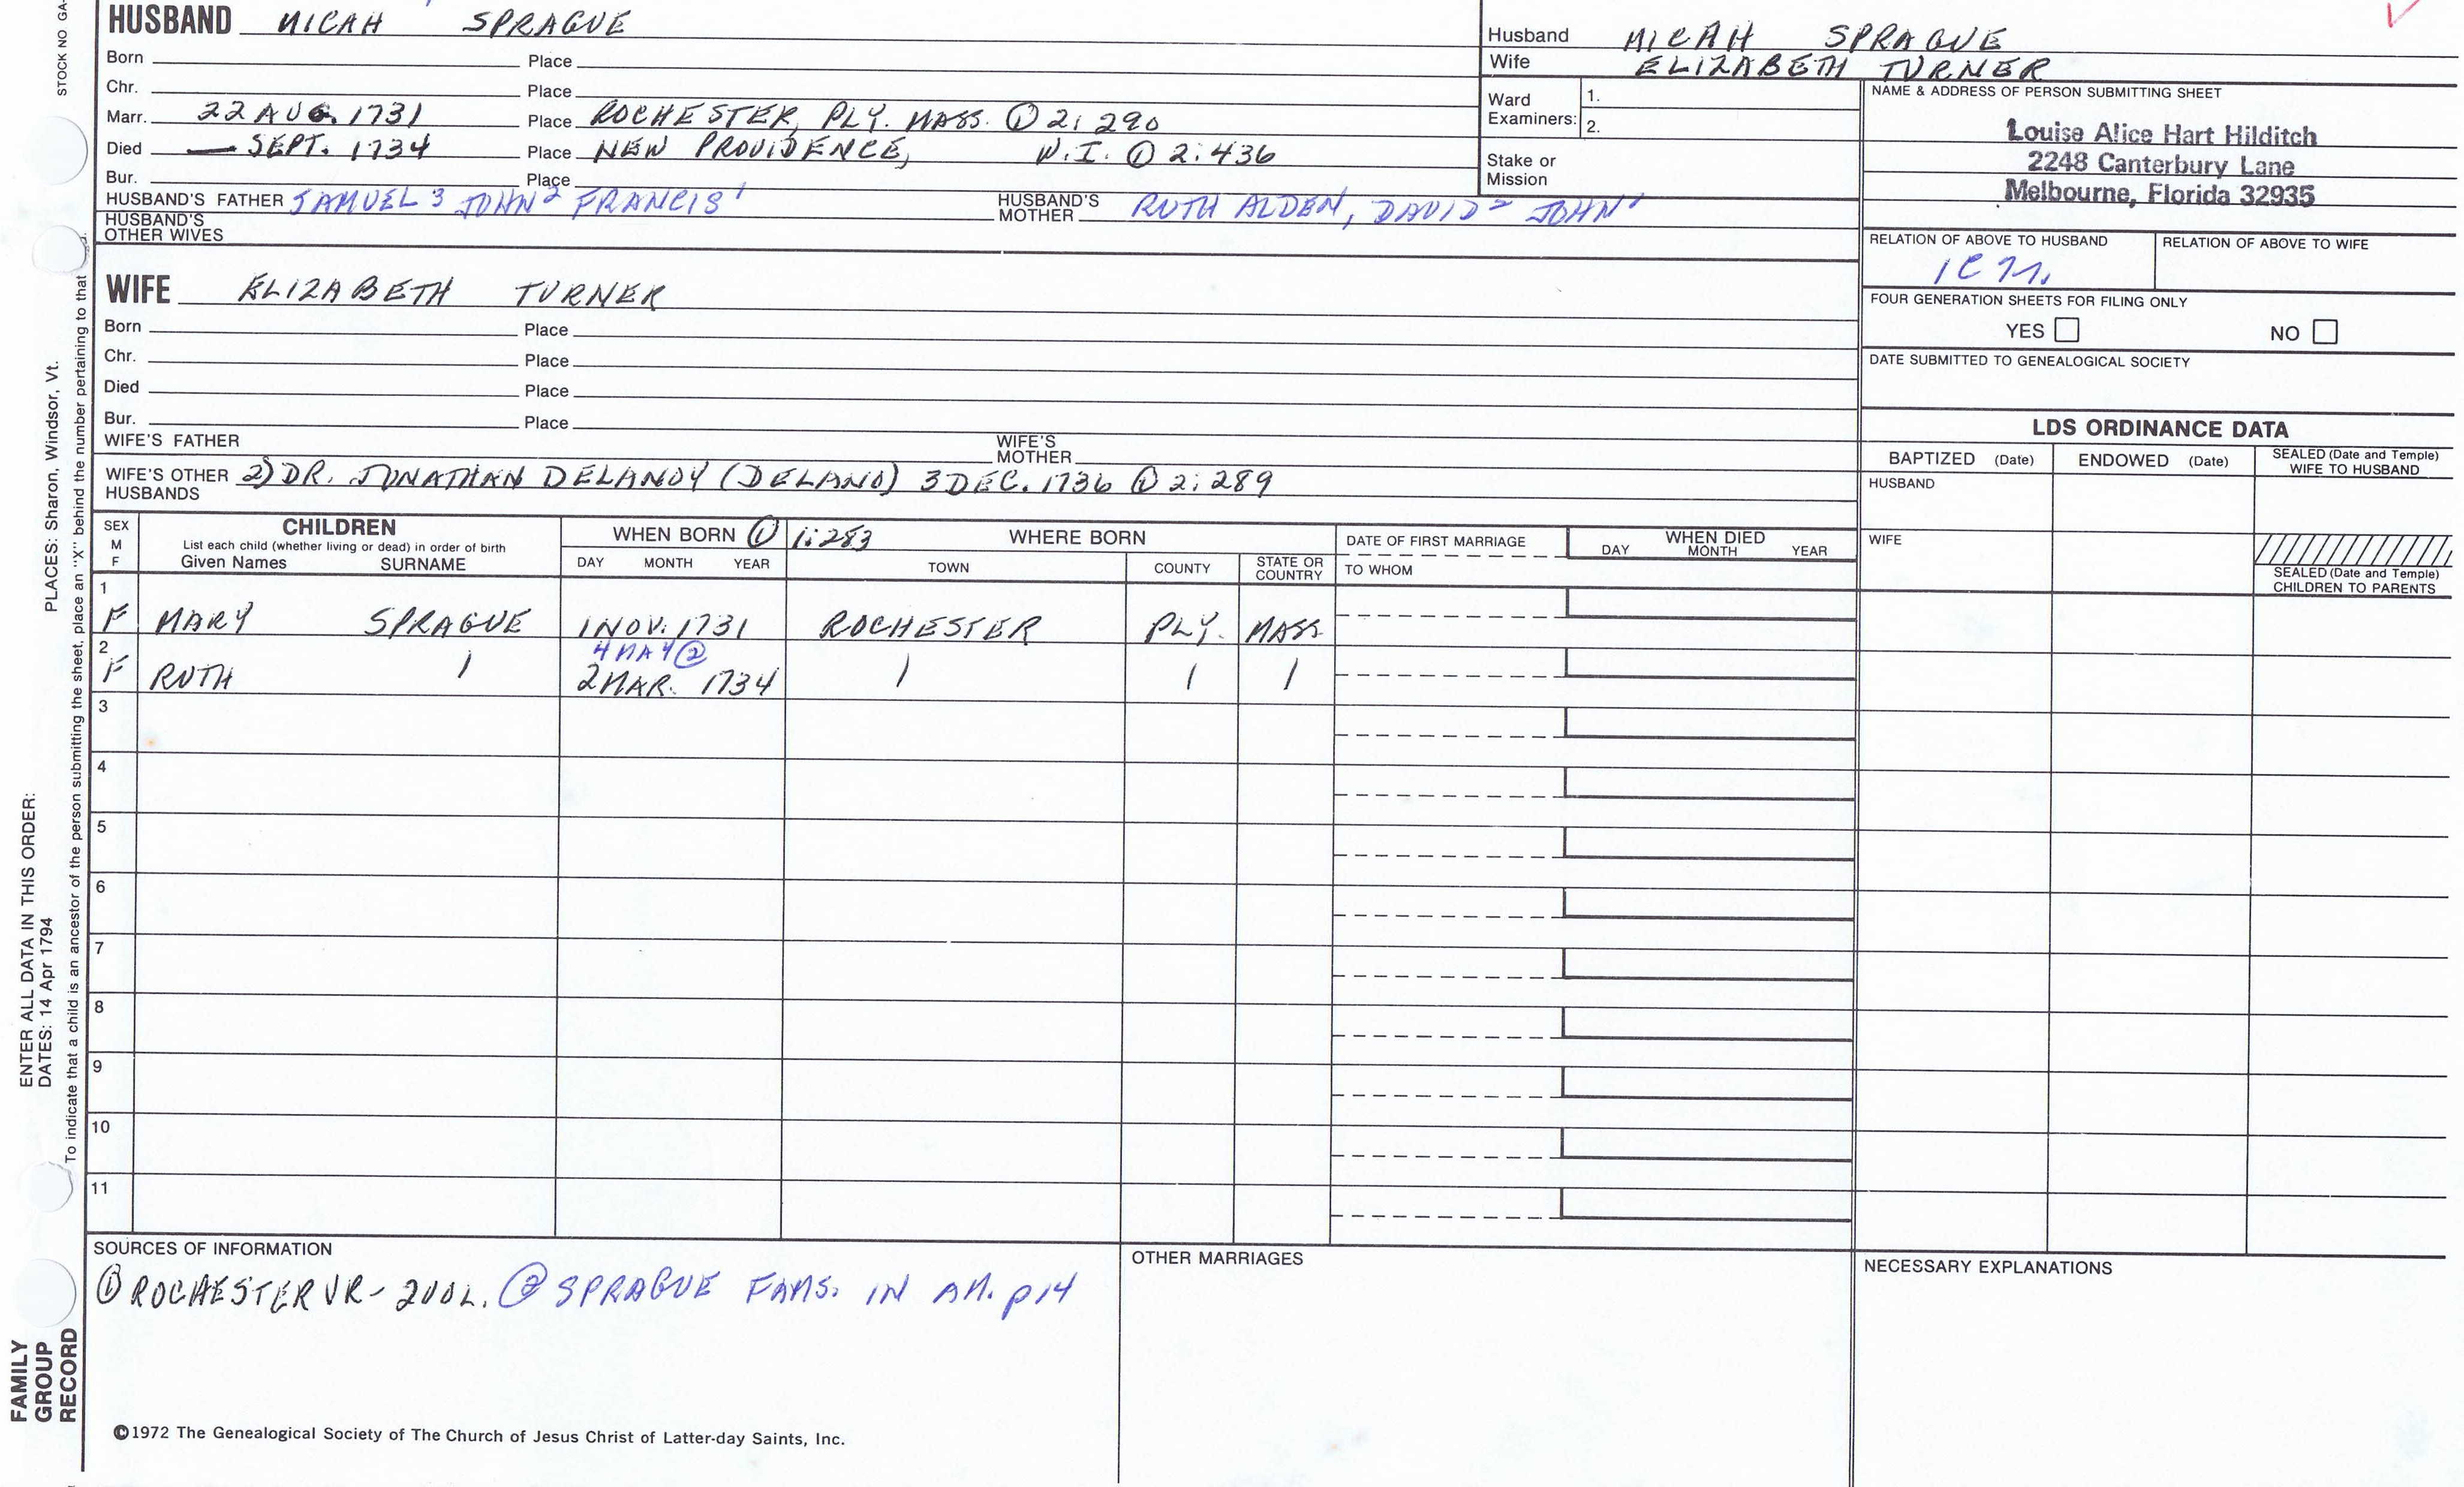 STOCK NO GA-
HUSBAND MICAH SPRAGUE
Born Place
Chr. Place
Marr. 22 AUG. 1731 Place ROCHESTER, PLY. MASS. ① 2: 290
Died — SEPT. 1734 Place NEW PROVIDENCE, W.I. ① 2:436
Bur. Place
HUSBAND'S FATHER SAMUEL 3 JOHN 2 FRANCIS 1 HUSBAND'S MOTHER RUTH ALDEN, DAVID 2 JOHN 1
HUSBAND'S OTHER WIVES
Husband MICAH SPRAGUE
Wife ELIZABETH TURNER
Ward Examiners: 1.
2.
Stake or Mission
NAME & ADDRESS OF PERSON SUBMITTING SHEET
Louise Alice Hart Hilditch
2248 Canterbury Lane
Melbourne, Florida 32935
RELATION OF ABOVE TO HUSBAND RELATION OF ABOVE TO WIFE
FOUR GENERATION SHEETS FOR FILING ONLY
YES NO
DATE SUBMITTED TO GENEALOGICAL SOCIETY
WIFE ELIZABETH TURNER
Born Place
Chr. Place
Died Place
Bur. Place
WIFE'S FATHER WIFE'S MOTHER
WIFE'S OTHER HUSBANDS 2) DR. JONATHAN DELANOY (DELANO) 3 DEC. 1736 ① 2: 289
LDS ORDINANCE DATA
BAPTIZED (Date) ENDOWED (Date) SEALED (Date and Temple) WIFE TO HUSBAND
HUSBAND
WIFE
SEALED (Date and Temple) CHILDREN TO PARENTS
SEX M F
CHILDREN
List each child (whether living or dead) in order of birth
Given Names SURNAME
WHEN BORN ① 1:283 WHERE BORN
DAY MONTH YEAR TOWN COUNTY STATE OR COUNTRY
DATE OF FIRST MARRIAGE
TO WHOM
WHEN DIED
DAY MONTH YEAR
1
F MARY SPRAGUE 1 NOV. 1731 ROCHESTER PLY. MASS
2 4 MAY ②
F RUTH 1 2 MAR. 1734 1 1 1
3
4
5
6
7
8
9
10
11
SOURCES OF INFORMATION
① ROCHESTER VR - 2 VOL. ② SPRAGUE FAMS. IN AM. p 14
OTHER MARRIAGES
NECESSARY EXPLANATIONS
©1972 The Genealogical Society of The Church of Jesus Christ of Latter-day Saints, Inc.
ENTER ALL DATA IN THIS ORDER:
DATES: 14 Apr 1794 PLACES: Sharon, Windsor, Vt.
To indicate that a child is an ancestor of the person submitting the sheet, place an "X" behind the number pertaining to that
FAMILY
GROUP
RECORD